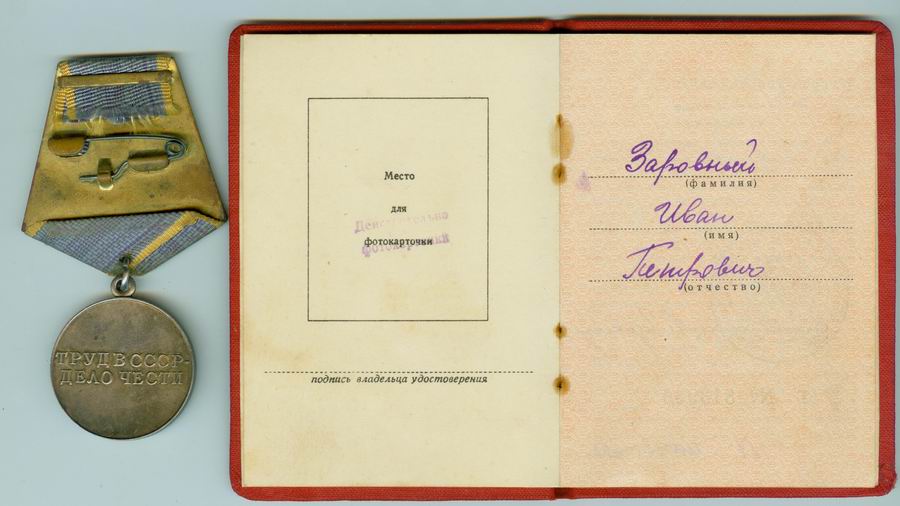 ТРУД В СССР-
ДЕЛО ЧЕСТИ
Место
для
фотокарточки
Действительно
фотокарточки
подпись владельца удостоверения
Заровный
(фамилия)
Иван
(имя)
Петрович
(отчество)